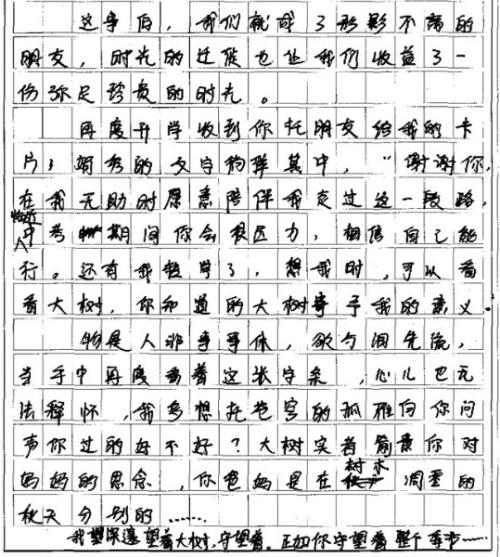 这事后，我们就成了形影不离的
朋友，时光的迁徙也让我们收益了一
份弥足珍贵的时光。
再度开学收到你托朋友给我的卡
片；娟秀的文字狗弹其中，“谢谢你，
在我无助时愿意陪伴我走过这一段路，
临近
中考期间你会很压力，相信自己能
行。还有我转学了，想我时，可以看
看大树，你知道的大树寄予我的意义。
物是人非事事休，欲与泪先流，
当手中再度看着这张字条，心儿也无
法释怀，我多想托苍穹的孤雁向你问
声你过的好不好？大树实着你对
妈妈的思念，你爸妈是在树木凋零的
秋天分别的……
我望深邃望着大树，守望着。正如你守望着整个季节……